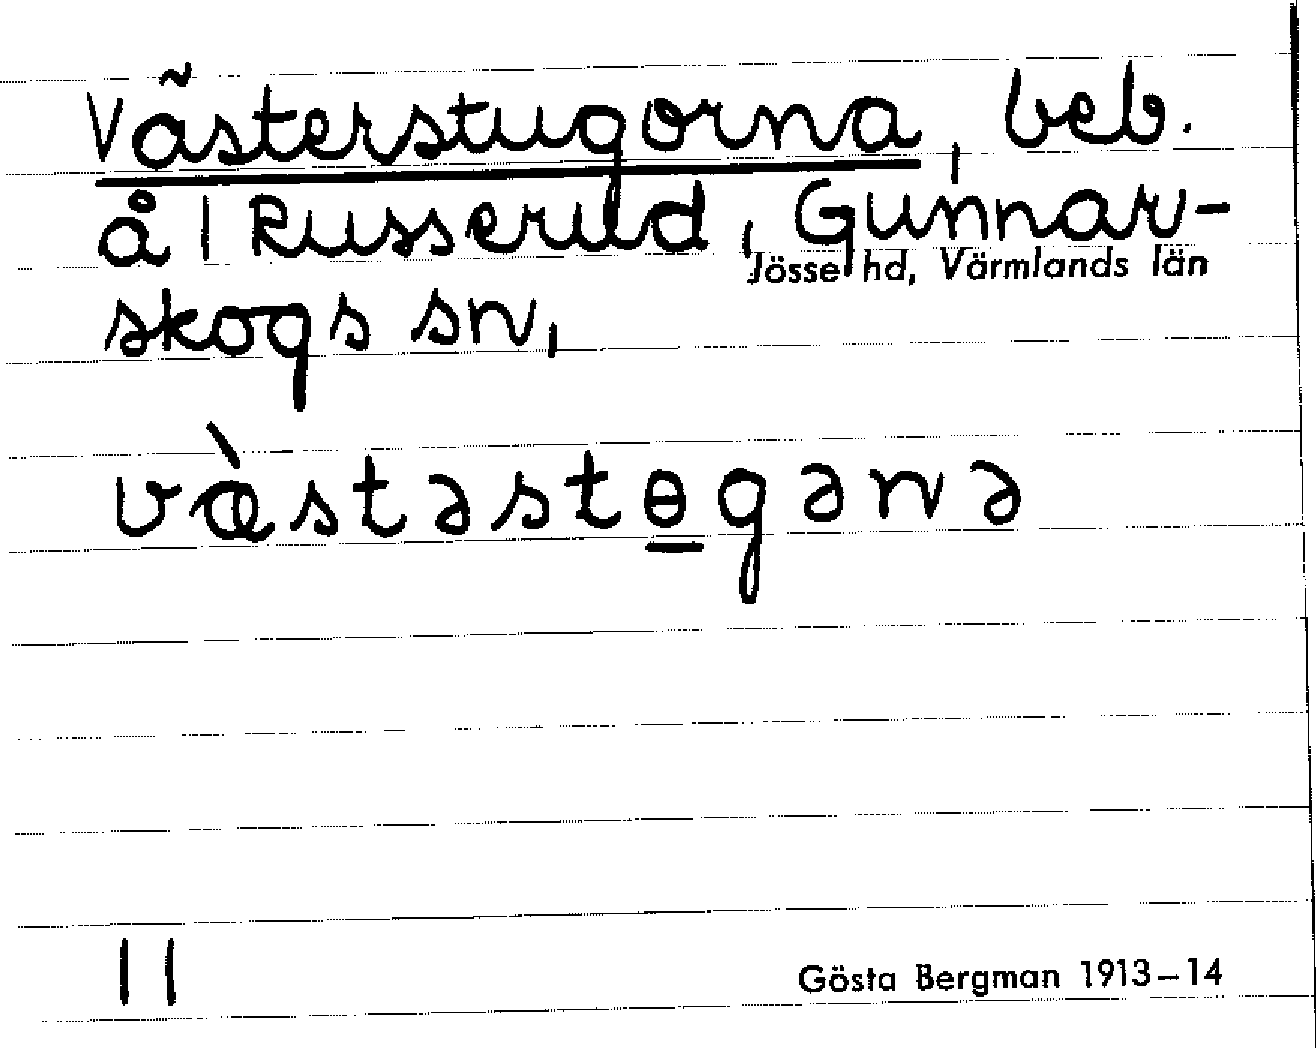 Västerstugorna, beb.
å 1 Russerud, Gunnar-
Jösse hd, Värmlands län
skogs sn,
væ̀stəstɵ̲gənə
11
Gösta Bergman 1913–14